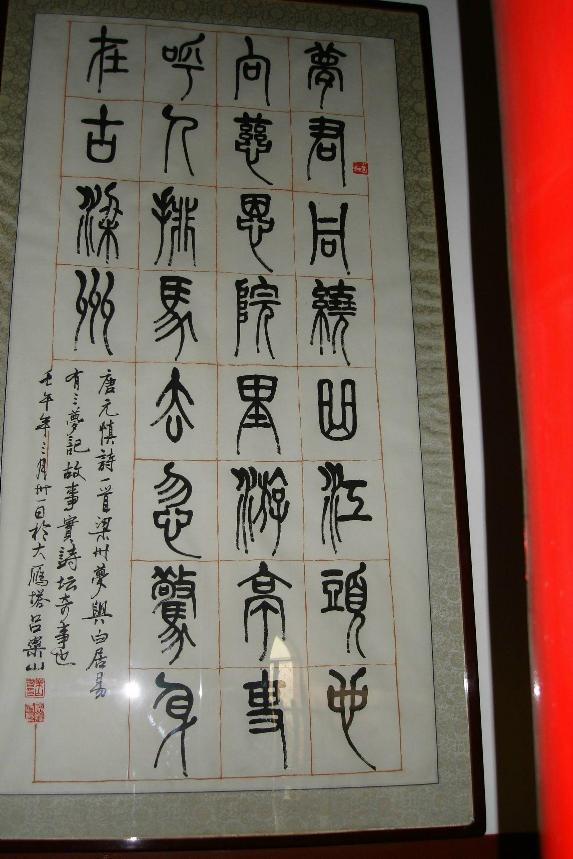 夢君同繞曲江頭也
向慈恩院里游亭吏
呼人排馬去忽驚身
在古梁州
唐元慎詩一首梁州夢與白居易
有三夢記故事實詩坛奇事也
壬午年三月卅一日於大雁塔吕樂山